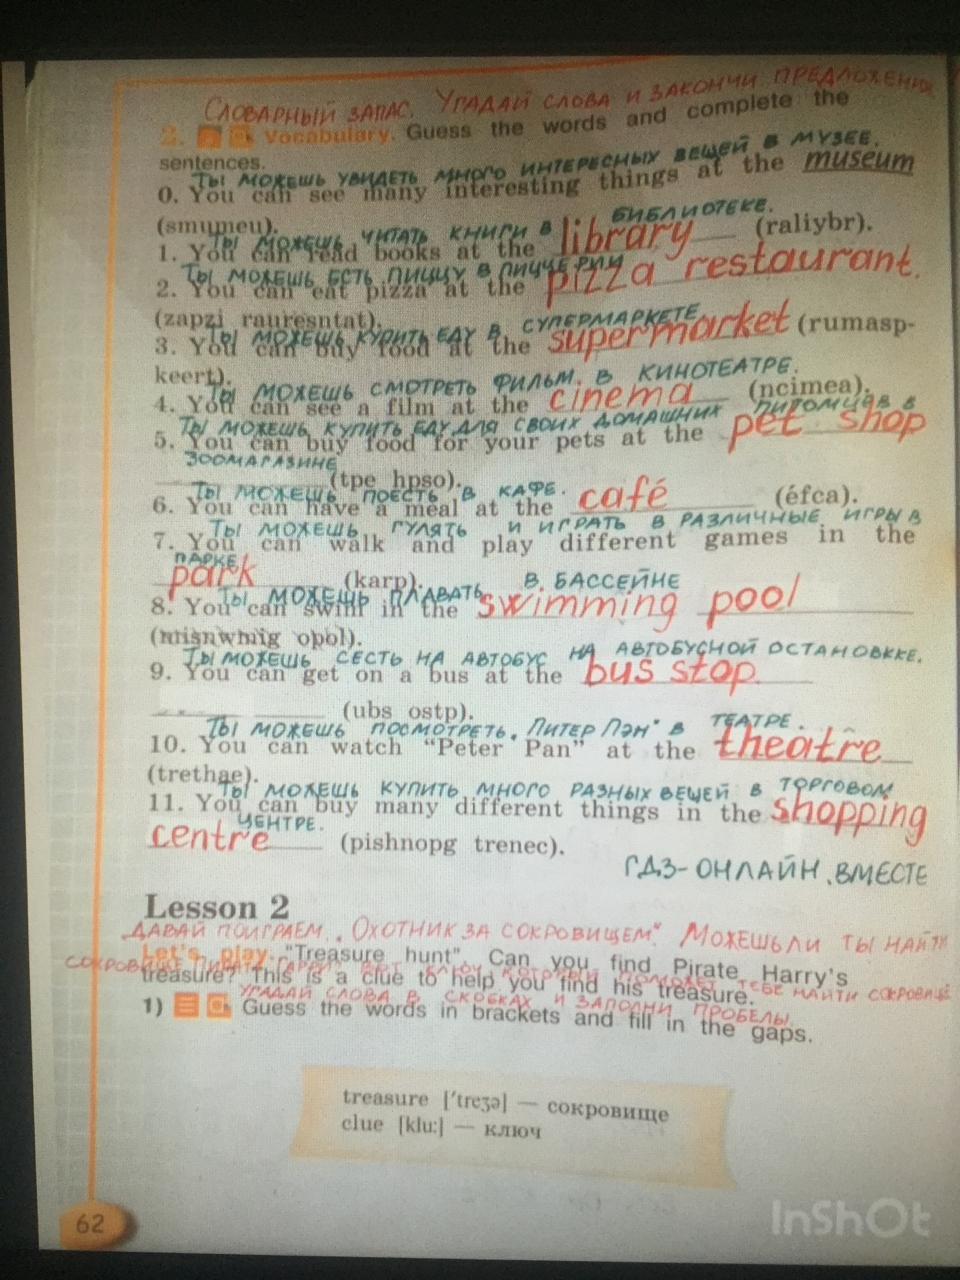 СЛОВАРНЫЙ ЗАПАС. УГАДАЙ СЛОВА И ЗАКОНЧИ ПРЕДЛОЖЕНИЯ
2. Vocabulary. Guess the words and complete the
sentences.
ТЫ МОЖЕШЬ УВИДЕТЬ МНОГО ИНТЕРЕСНЫХ ВЕЩЕЙ В МУЗЕЕ.
0. You can see many interesting things at the museum
(smumeu).
ТЫ МОЖЕШЬ ЧИТАТЬ КНИГИ В БИБЛИОТЕКЕ.
1. You can read books at the library (raliybr).
ТЫ МОЖЕШЬ ЕСТЬ ПИЦЦУ В ПИЦЦЕРИИ
2. You can eat pizza at the pizza restaurant.
(zapzi rauresntat).
ТЫ МОЖЕШЬ КУПИТЬ ЕДУ В СУПЕРМАРКЕТЕ
3. You can buy food at the supermarket (rumasp-
keert).
ТЫ МОЖЕШЬ СМОТРЕТЬ ФИЛЬМ В КИНОТЕАТРЕ.
4. You can see a film at the cinema (ncimea).
ТЫ МОЖЕШЬ КУПИТЬ ЕДУ ДЛЯ СВОИХ ДОМАШНИХ ПИТОМЦЕВ В
5. You can buy food for your pets at the pet shop
ЗООМАГАЗИНЕ
(tpe hpso).
ТЫ МОЖЕШЬ ПОЕСТЬ В КАФЕ.
6. You can have a meal at the café (éfca).
ТЫ МОЖЕШЬ ГУЛЯТЬ И ИГРАТЬ В РАЗЛИЧНЫЕ ИГРЫ В
7. You can walk and play different games in the
ПАРКЕ
park (karp).
ТЫ МОЖЕШЬ ПЛАВАТЬ В БАССЕЙНЕ
8. You can swim in the swimming pool
(misnwmig opol).
ТЫ МОЖЕШЬ СЕСТЬ НА АВТОБУС НА АВТОБУСНОЙ ОСТАНОВККЕ.
9. You can get on a bus at the bus stop.
(ubs ostp).
ТЫ МОЖЕШЬ ПОСМОТРЕТЬ „ПИТЕР ПЭН" В ТЕАТРЕ.
10. You can watch “Peter Pan” at the theatre
(trethae).
ТЫ МОЖЕШЬ КУПИТЬ МНОГО РАЗНЫХ ВЕЩЕЙ В ТОРГОВОМ
11. You can buy many different things in the shopping
ЦЕНТРЕ.
centre (pishnopg trenec).
ГДЗ-ОНЛАЙН.ВМЕСТЕ
Lesson 2
ДАВАЙ ПОИГРАЕМ „ОХОТНИК ЗА СОКРОВИЩЕМ" МОЖЕШЬ ЛИ ТЫ НАЙТИ
Let's play "Treasure hunt". Can you find Pirate Harry's
СОКРОВИЩЕ ПИРАТА ГАРРИ ВОТ КЛЮЧ КОТОРЫЙ ПОМОЖЕТ ТЕБЕ НАЙТИ СОКРОВИЩЕ
treasure? This is a clue to help you find his treasure.
УГАДАЙ СЛОВА В СКОБКАХ И ЗАПОЛНИ ПРОБЕЛЫ.
1) Guess the words in brackets and fill in the gaps.
treasure ['treʒə] — сокровище
clue [klu:] — ключ
62
InShOt